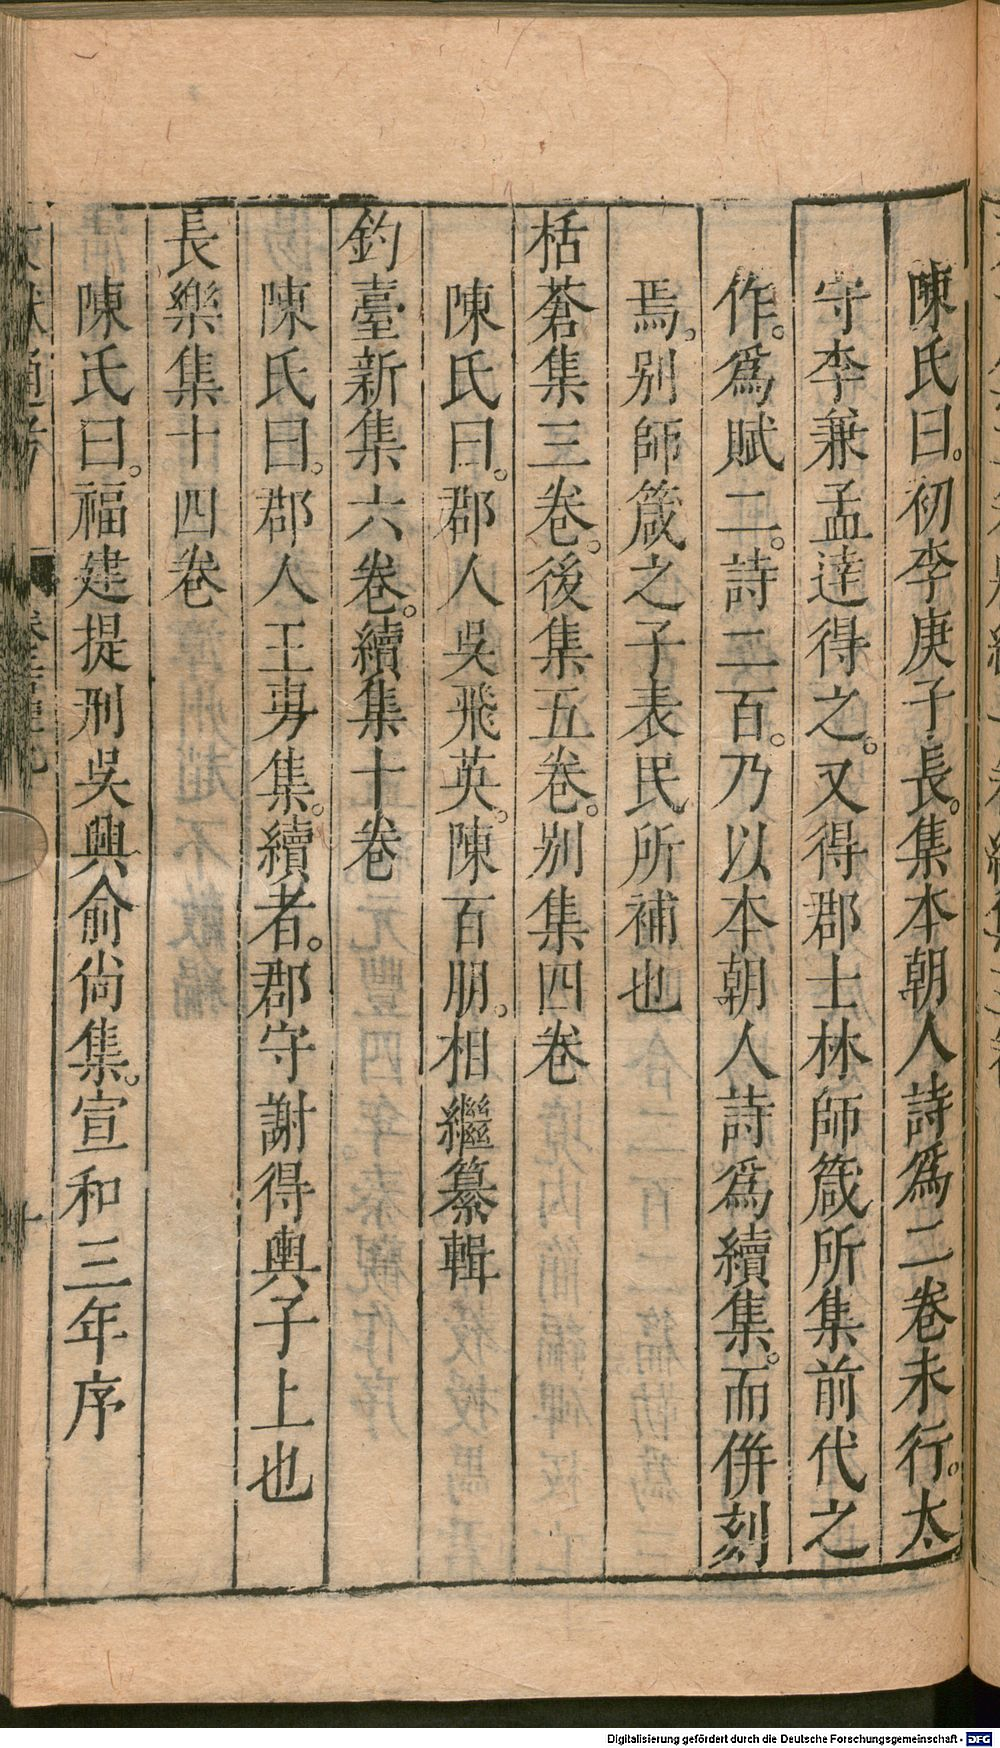 陳氏曰。初李庚子長。集本朝人詩爲二卷未行。太
守李兼孟達得之。又得郡士林師箴所集前代之
作。爲賦二。詩二百。乃以本朝人詩爲續集。而併刻
焉。別師箴之子表民所補也
栝蒼集三卷。後集五卷。別集四卷
陳氏曰。郡人吳飛英。陳百朋。相繼纂輯
釣臺新集六卷。續集十卷
陳氏曰。郡人王専集。續者。郡守謝得輿子上也
長樂集十四卷
陳氏曰。福建提刑吳興俞尙集。宣和三年序
Digitalisierung gefördert durch die Deutsche Forschungsgemeinschaft - DFG